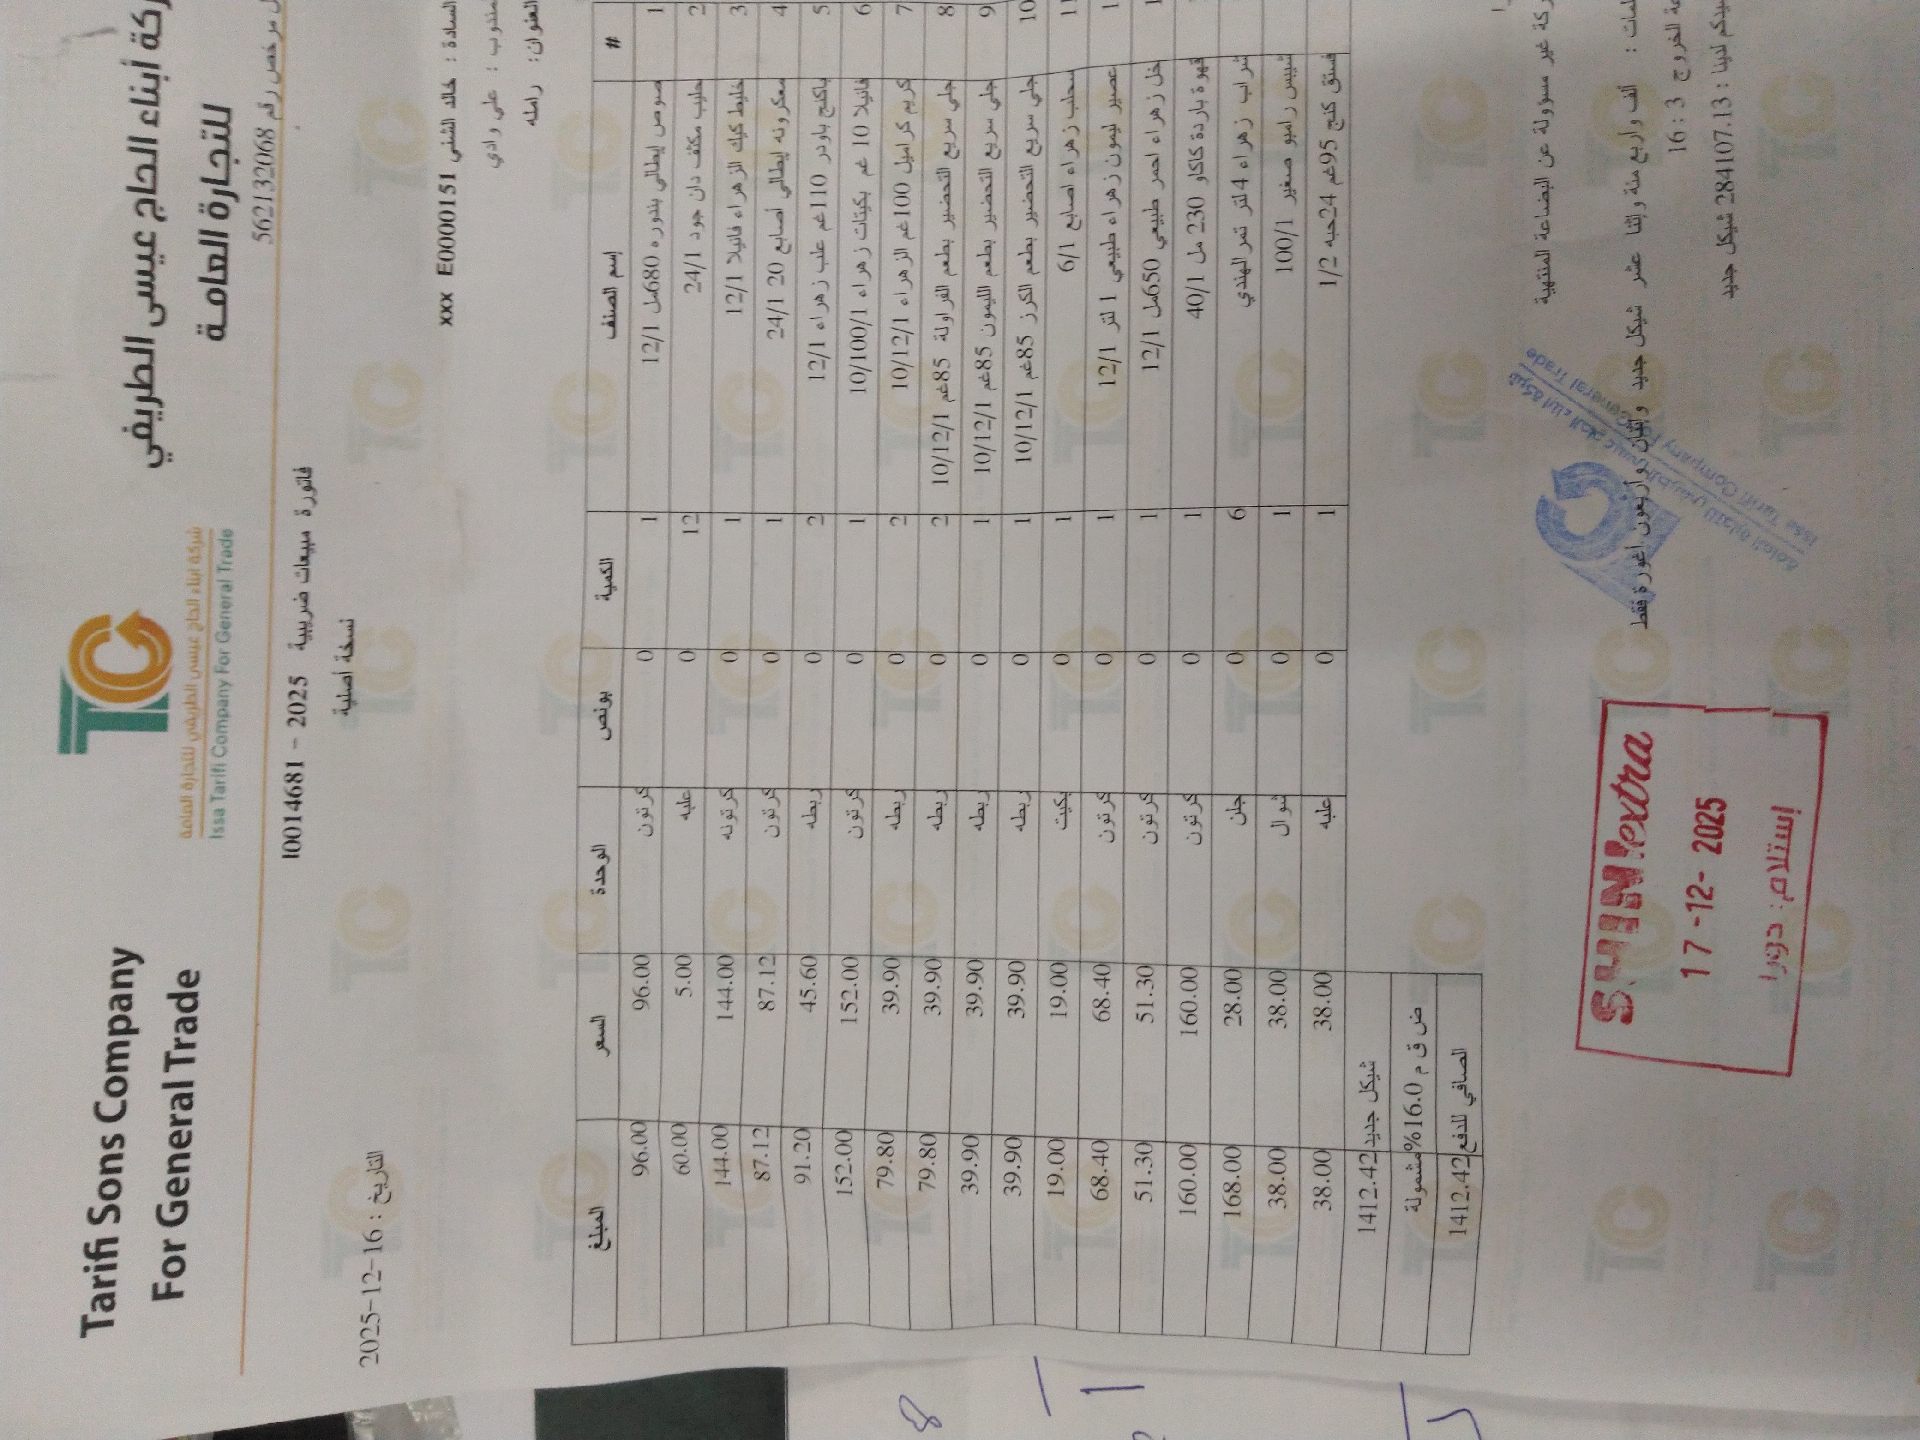 Tarifi Sons Company
For General Trade
شركة ابناء الحاج عيسى الطريفي للتجارة العامة
Issa Tarifi Company For General Trade
كة أبناء الحاج عيسى الطريفي
للتجارة العامة
مرخص رقم 562132068
فاتورة مبيعات ضريبية 2025 - I0014681
نسخة أصلية
التاريخ : 16-12-2025
السادة : خالد الشني E0000151 xxx
مندوب : علي وادي
العنوان: رامله
# إسم الصنف الكمية بونص الوحدة السعر المبلغ
1 صوص إيطالي بندوره 680مل 12/1 1 0 كرتون 96.00 96.00
2 حليب مكثف دان جود 24/1 12 0 علبه 5.00 60.00
3 خليط كيك الزهراء فانيلا 12/1 1 0 كرتونه 144.00 144.00
4 معكرونه إيطالي أصابع 20 24/1 1 0 كرتون 87.12 87.12
5 باكنج باودر 110غم علب زهراء 12/1 2 0 ربطه 45.60 91.20
6 فانيلا 10 غم بكيتات زهراء 10/100/1 1 0 كرتون 152.00 152.00
7 كريم كراميل 100غم الزهراء 10/12/1 2 0 ربطه 39.90 79.80
8 جلي سريع التحضير بطعم الفراولة 85غم 10/12/1 2 0 ربطه 39.90 79.80
9 جلي سريع التحضير بطعم الليمون 85غم 10/12/1 1 0 ربطه 39.90 39.90
10 جلي سريع التحضير بطعم الكرز 85غم 10/12/1 1 0 ربطه 39.90 39.90
11 سحلب زهراء اصابع 6/1 1 0 بكيت 19.00 19.00
1 عصير ليمون زهراء طبيعي 1 لتر 12/1 1 0 كرتون 68.40 68.40
1 خل زهراء احمر طبيعي 650مل 12/1 1 0 كرتون 51.30 51.30
قهوة باردة كاكاو 230 مل 40/1 1 0 كرتون 160.00 160.00
شراب زهراء 4 لتر تمر الهندي 6 0 جلن 28.00 168.00
شيبس رامبو صغير 100/1 1 0 شوال 38.00 38.00
فستق كلنج 95غم 24حبه 1/2 1 0 علبه 38.00 38.00
شيكل جديد 1412.42
ض ق م 16.0% مشمولة
الصافي للدفع 1412.42
كة غير مسؤولة عن البضاعة المنتهية
ألف واربع مئة وإثنا عشر شيكل جديد وإثنان وأربعون اغورة فقط
ة الخروج : 3 : 16
لدينا : 284107.13 شيكل جديد
شركة ابناء الحاج عيسى الطريفي للتجارة العامة
Issa Tarifi Company For General Trade
SHINI extra
17-12-2025
إستلام: دورا